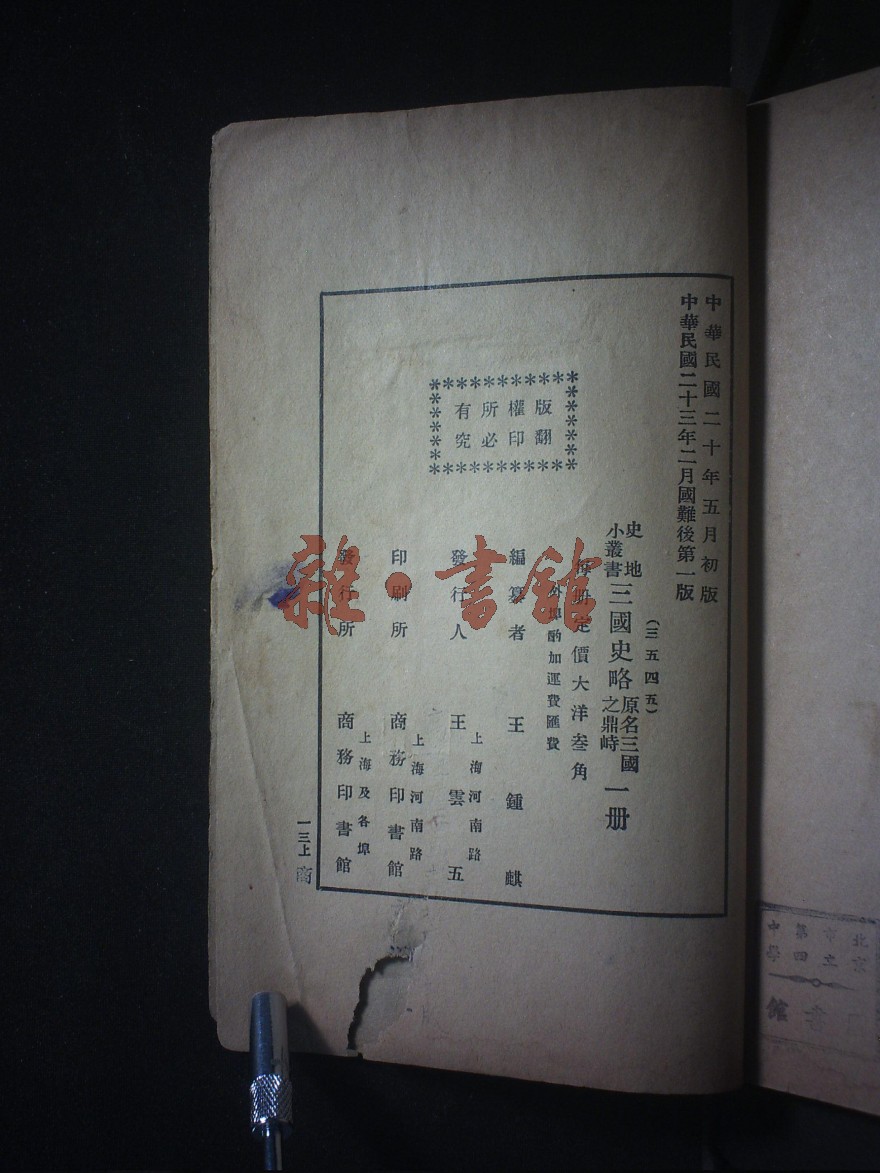 中華民國二十年五月初版
中華民國二十三年二月國難後第一版
(三五四五)
史地
小叢書
三國史略
原名三國
之鼎峙
一册
每册定價大洋叁角
外埠酌加運費匯費
版權所有
翻印必究
編纂者
王鍾麒
發行人
上海河南路
王雲五
印刷所
上海河南路
商務印書館
發行所
上海及各埠
商務印書館
一三上
商
雜·書館
北京
市立
第四
中學
館